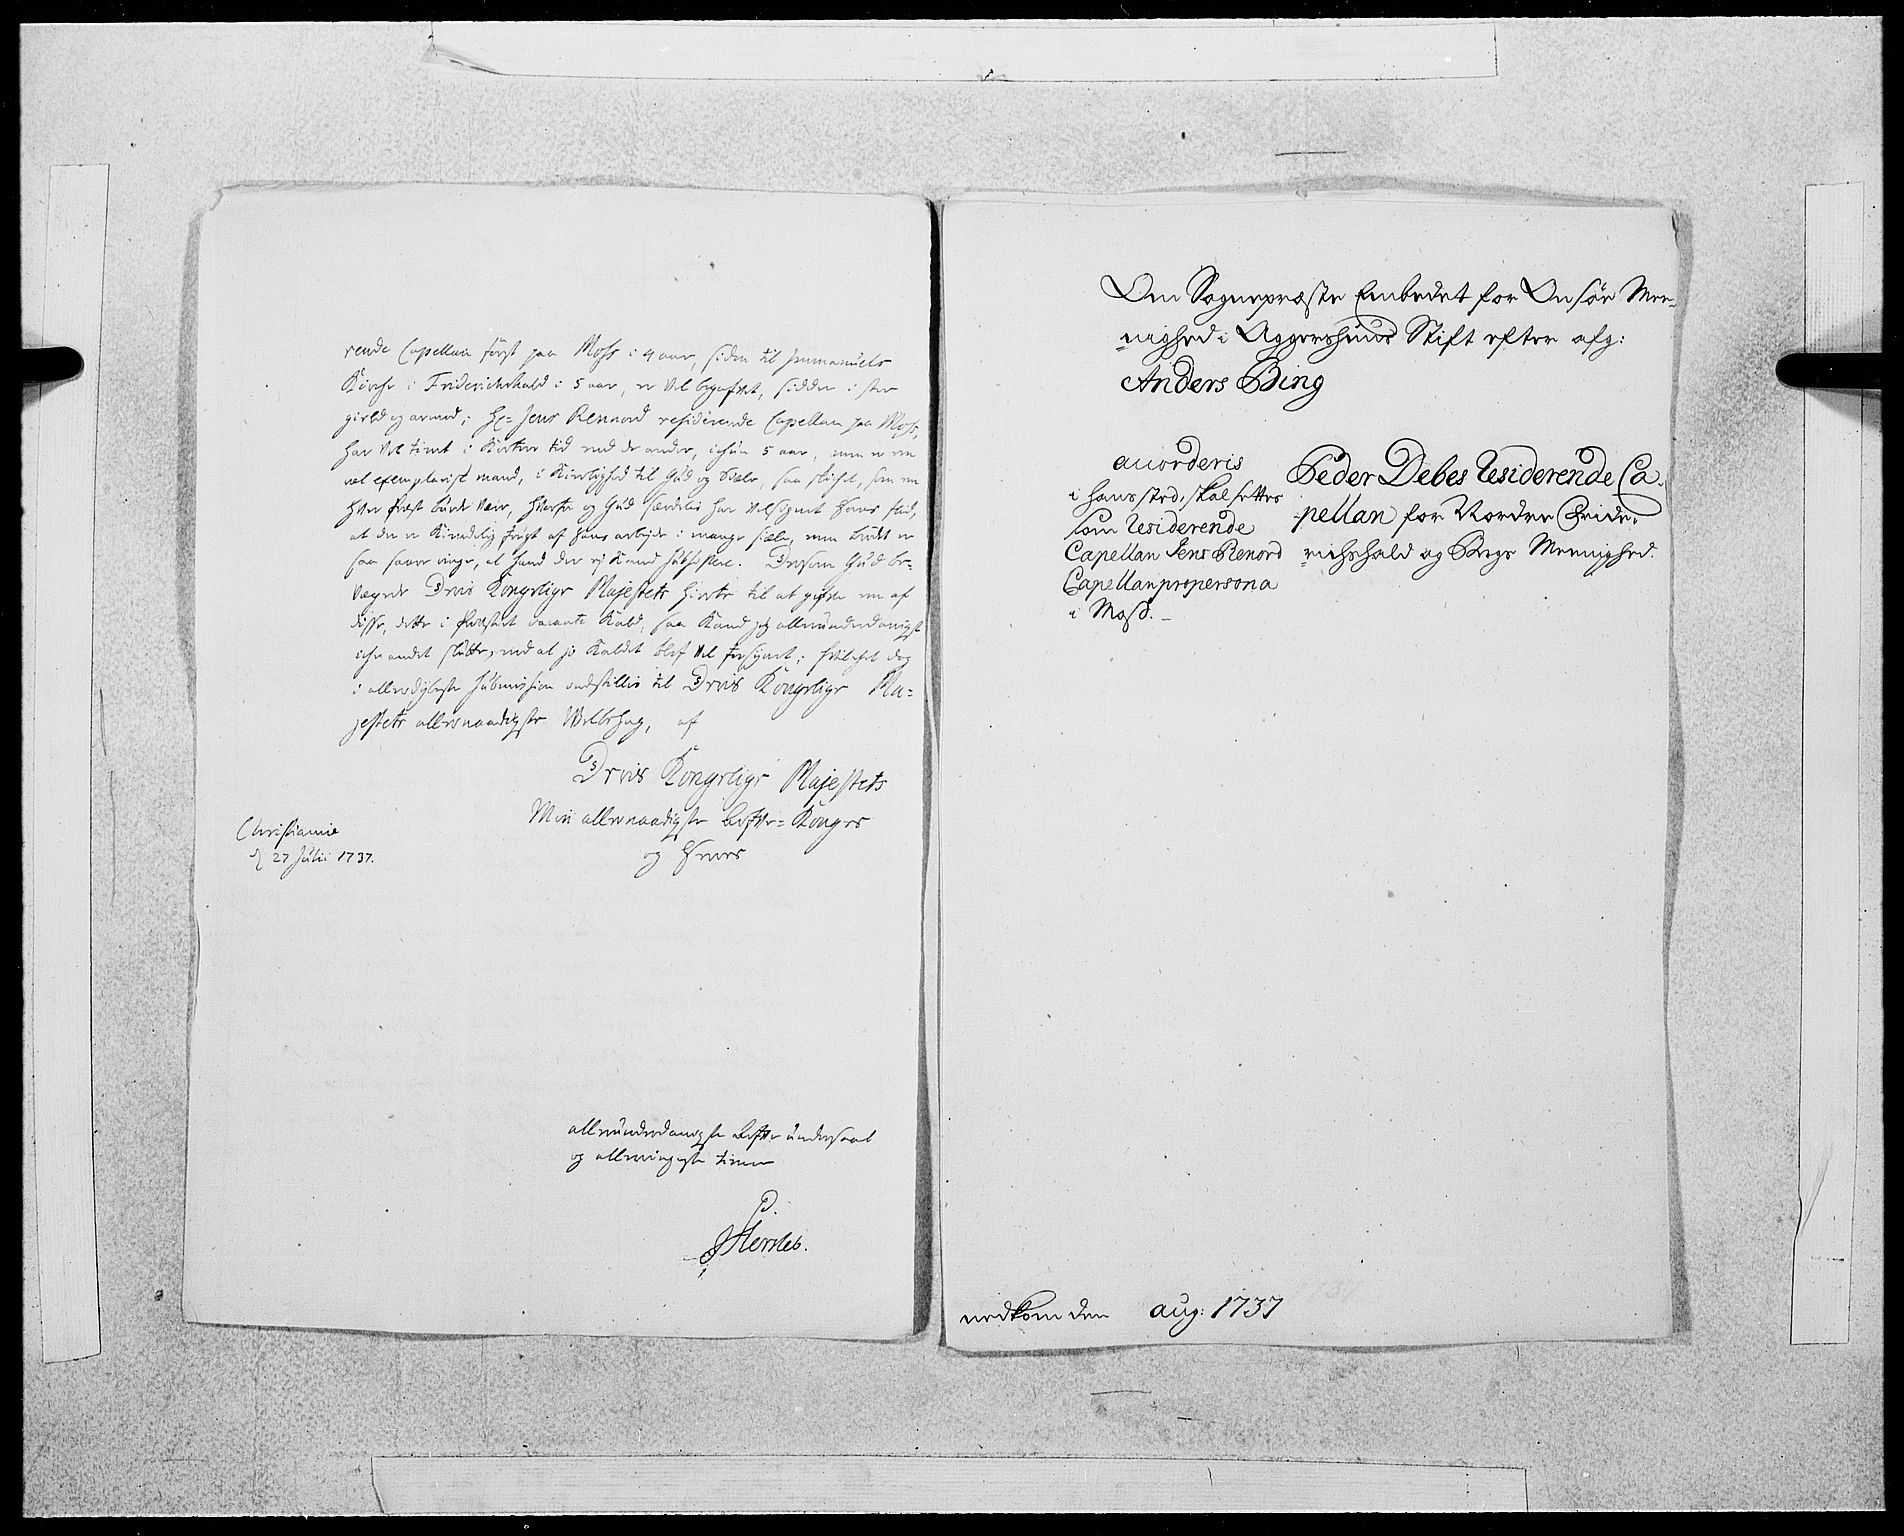 rende Capellan først paa Moss i 4 aar, siden til Immanuels
Kirche i Friderichshald i 5 aar, er vel begafvet, sidder i stor
gield og armod; Hr= Jens Rennord residerende Capellan paa Moss,
har vel tient i kortere tid end de andre, ichun 5 aar, men er en
ret exemplarisk mand, i Kierlighed til Gud og siæle, saa flittig, som en
hver Præst burde være, hvorfor og Gud særdelis har velsignet hans flid,
at der er kiendelig frugt af hans arbejde i mange siæle, men brødet er
saa saare ringe, at hand der ej kand subsistere. Dersom Gud be-
væger Deris Kongelige Majestets hierte til at gifve en af
disse, dette i stiftet vacante Kald, saa kand jeg allerunderdanigst
iche andet slutte, end at jo Kaldet blef vel forsynet; hvilchet dog
i allerdybeste submission indstillis til Deris Kongelige Ma-
jestets allernaadigste Velbehag, af
Deris Kongelige Majestets
Min allernaadigste Arfve-Konges
og Herres
Christiania
d 27 Julii 1737.
allerunderdanigste Arfve undersaat
og allerringeste tiener
P.
Hersleb.
Om Sognepræste Embedet for Onsøe Mee-
nighed i Aggershuus Stift efter afg:
Anders Bing
auorderis
i hans sted, skal settes
som Residerende
Capellan Jens Renord
Capellan pro persona
i Moss.
Peder Debes Residerende Ca-
pellan for Nordre Fride-
richshald og Bergs Meenighed.
nedkom den aug: 1737